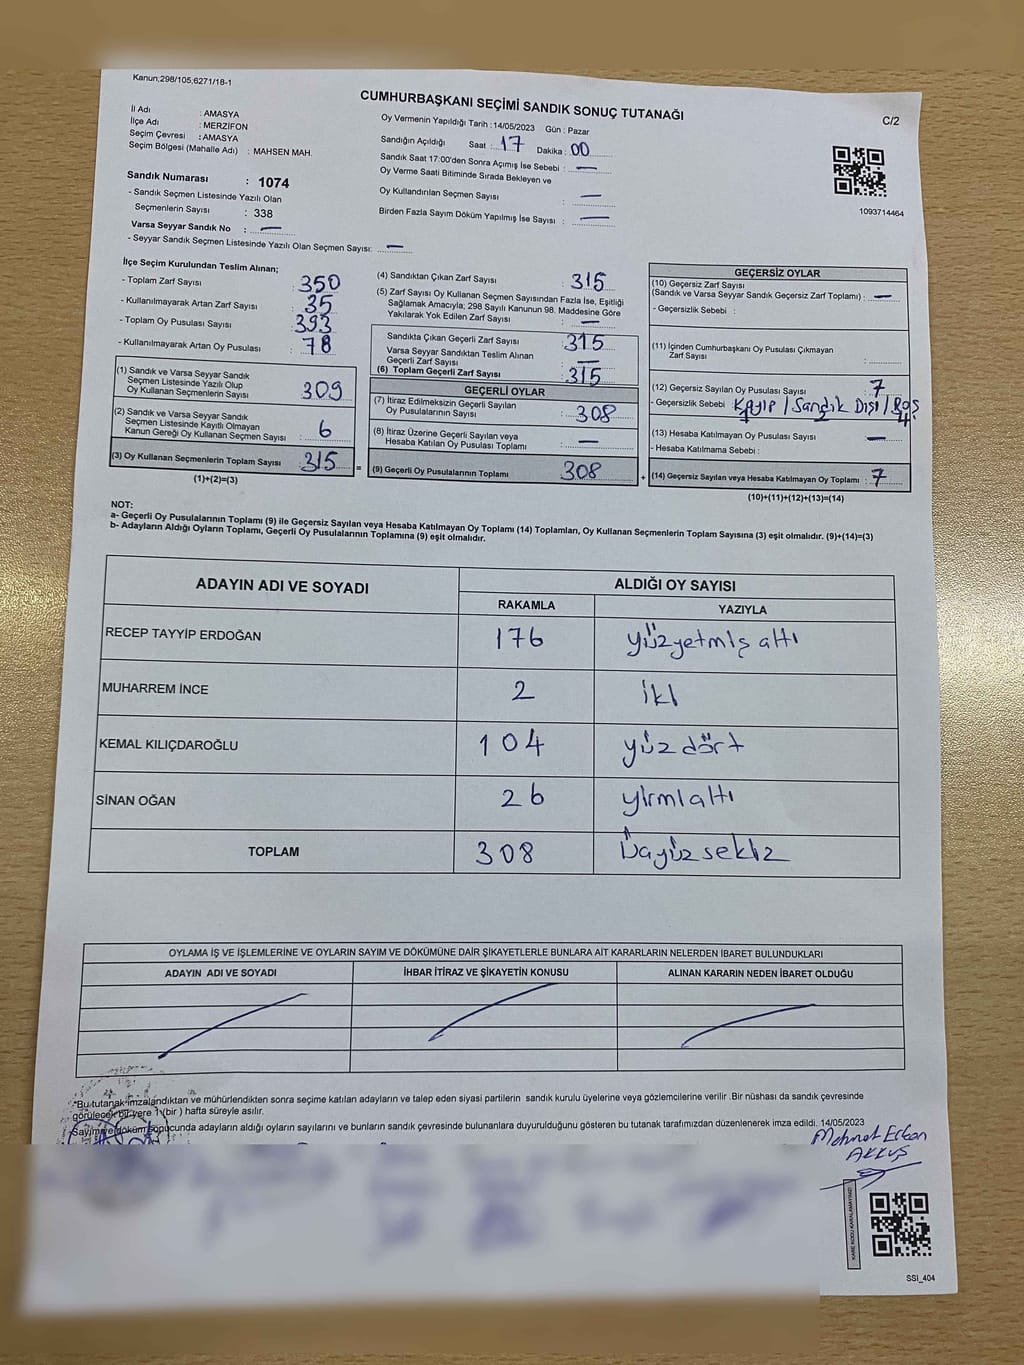 Kanun;298/105;6271/18-1
CUMHURBAŞKANI SEÇİMİ SANDIK SONUÇ TUTANAĞI
C/2
İl Adı : AMASYA
İlçe Adı : MERZİFON
Seçim Çevresi : AMASYA
Seçim Bölgesi (Mahalle Adı) : MAHSEN MAH.
Sandık Numarası : 1074
- Sandık Seçmen Listesinde Yazılı Olan
Seçmenlerin Sayısı : 338
Varsa Seyyar Sandık No : —
- Seyyar Sandık Seçmen Listesinde Yazılı Olan Seçmen Sayısı: —
Oy Vermenin Yapıldığı Tarih : 14/05/2023 Gün : Pazar
Sandığın Açıldığı Saat : 17 Dakika : 00
Sandık Saat 17:00'den Sonra Açımış İse Sebebi : —
Oy Verme Saati Bitiminde Sırada Bekleyen ve
Oy Kullandırılan Seçmen Sayısı : —
Birden Fazla Sayım Döküm Yapılmış İse Sayısı : —
1093714464
İlçe Seçim Kurulundan Teslim Alınan;
- Toplam Zarf Sayısı : 350
- Kullanılmayarak Artan Zarf Sayısı : 35
- Toplam Oy Pusulası Sayısı : 393
- Kullanılmayarak Artan Oy Pusulası : 78
(1) Sandık ve Varsa Seyyar Sandık
Seçmen Listesinde Yazılı Olup
Oy Kullanan Seçmenlerin Sayısı : 309
(2) Sandık ve Varsa Seyyar Sandık
Seçmen Listesinde Kayıtlı Olmayan
Kanun Gereği Oy Kullanan Seçmen Sayısı : 6
(3) Oy Kullanan Seçmenlerin Toplam Sayısı : 315 =
(1)+(2)=(3)
(4) Sandıktan Çıkan Zarf Sayısı : 315
(5) Zarf Sayısı Oy Kullanan Seçmen Sayısından Fazla İse, Eşitliği
Sağlamak Amacıyla; 298 Sayılı Kanunun 98. Maddesine Göre
Yakılarak Yok Edilen Zarf Sayısı : —
Sandıkta Çıkan Geçerli Zarf Sayısı : 315
Varsa Seyyar Sandıktan Teslim Alınan
Geçerli Zarf Sayısı : —
(6) Toplam Geçerli Zarf Sayısı : 315
GEÇERLİ OYLAR
(7) İtiraz Edilmeksizin Geçerli Sayılan
Oy Pusulalarının Sayısı : 308
(8) İtiraz Üzerine Geçerli Sayılan veya
Hesaba Katılan Oy Pusulası Toplamı : —
(9) Geçerli Oy Pusulalarının Toplamı : 308 +
GEÇERSİZ OYLAR
(10) Geçersiz Zarf Sayısı
(Sandık ve Varsa Seyyar Sandık Geçersiz Zarf Toplamı) : —
- Geçersizlik Sebebi :
(11) İçinden Cumhurbaşkanı Oy Pusulası Çıkmayan
Zarf Sayısı :
(12) Geçersiz Sayılan Oy Pusulası Sayısı : 7
- Geçersizlik Sebebi : Kayıp / Sandık Dışı / Boş
(13) Hesaba Katılmayan Oy Pusulası Sayısı : —
- Hesaba Katılmama Sebebi :
(14) Geçersiz Sayılan veya Hesaba Katılmayan Oy Toplamı : 7
(10)+(11)+(12)+(13)=(14)
NOT:
a- Geçerli Oy Pusulalarının Toplamı (9) ile Geçersiz Sayılan veya Hesaba Katılmayan Oy Toplamı (14) Toplamları, Oy Kullanan Seçmenlerin Toplam Sayısına (3) eşit olmalıdır. (9)+(14)=(3)
b- Adayların Aldığı Oyların Toplamı, Geçerli Oy Pusulalarının Toplamına (9) eşit olmalıdır.
ADAYIN ADI VE SOYADI ALDIĞI OY SAYISI
RAKAMLA YAZIYLA
RECEP TAYYİP ERDOĞAN 176 yüzyetmiş altı
MUHARREM İNCE 2 iki
KEMAL KILIÇDAROĞLU 104 yüz dört
SİNAN OĞAN 26 yirmialtı
TOPLAM 308 Üçyüz sekiz
OYLAMA İŞ VE İŞLEMLERİNE VE OYLARIN SAYIM VE DÖKÜMÜNE DAİR ŞİKAYETLERLE BUNLARA AİT KARARLARIN NELERDEN İBARET BULUNDUKLARI
ADAYIN ADI VE SOYADI İHBAR İTİRAZ VE ŞİKAYETİN KONUSU ALINAN KARARIN NEDEN İBARET OLDUĞU
"Bu tutanak imzalandıktan ve mühürlendikten sonra seçime katılan adayların ve talep eden siyasi partilerin sandık kurulu üyelerine veya gözlemcilerine verilir .Bir nüshası da sandık çevresinde
görülecek bir yere 1 (bir ) hafta süreyle asılır.
Sayım ve döküm sonucunda adayların aldığı oyların sayılarını ve bunların sandık çevresinde bulunanlara duyurulduğunu gösteren bu tutanak tarafımızdan düzenlenerek imza edildi. 14/05/2023
Mehmet Erkan
AKKUŞ
KARE KODU KARALAMAYINIZ!
SSI_404